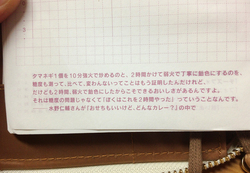 タマネギ1個を10分強火で炒めるのと、2時間かけて弱火で丁寧に飴色にするのを、
幾度も習って、比べて、変わんないってことはもう証明したんだけれど、
だけども2時間、弱火で飴色にしたからこそでるおいしさがあるんですよ。
それは精度の問題じゃなくて「ぼくはこれを2時間やった」っていうことなんです。
水野仁輔さんが『おせちもいいけど、どんなカレー?』の中で